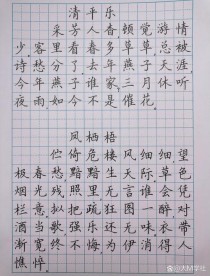 清平乐
采芳人杳 顿觉游情
少 客里看春多草草 总被
诗愁分了 去年燕子天涯
今年燕子谁家 三月休听
夜雨 如今不是催花
凤栖梧
伫倚危楼风细细 望
极春愁 黯黯生天际 草色
烟光残照里 无言谁会凭
栏意 拟把疏狂图一醉 对
酒当歌 强乐还无味 衣带
渐宽终不悔 为伊消得人
憔悴